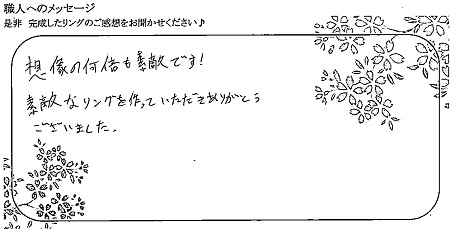 職人へのメッセージ
是非 完成したリングのご感想をお聞かせください♪
想像の何倍も素敵です!
素敵なリングを作っていただきありがとう
ございました。